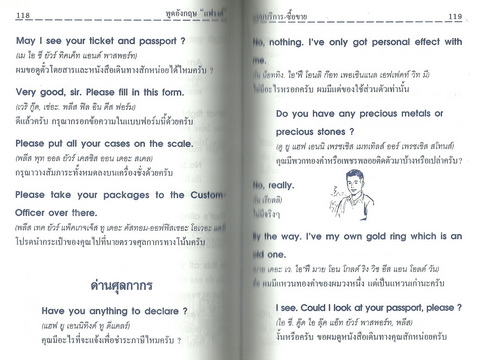 118
พูดอังกฤษ "แฟรงค์"
May I see your ticket and passport ?
(เม ไอ ซี ยัวร์ ทิคเค็ท แอนด์ พาสพอร์ท)
ผมขอดูตั๋วโดยสารและหนังสือเดินทางสักหน่อยได้ไหมครับ ?
Very good, sir. Please fill in this form.
(เวริ กู๊ด, เซอะ. พลีส ฟิล อิน ดีส ฟอร์ม)
ดีแล้วครับ กรุณากรอกข้อความในแบบฟอร์มนี้ด้วยครับ
Please put all your cases on the scale.
(พลีส พุท ออล ยัวร์ เคสซิส ออน เดอะ สเคล)
กรุณาวางสัมภาระทั้งหมดลงบนเครื่องชั่งด้วยครับ
Please take your packages to the Custom
Officer over there.
(พลีส เทค ยัวร์ แพ็คเกจเจ็ส ทู เดอะ คัสทอม-ออฟฟิสเซอะ โอเวอะ แดร์)
โปรดนำกระเป๋าของคุณไปที่นายตรวจศุลกากรทางโน้นครับ
ด่านศุลกากร
Have you anything to declare ?
(แฮฟ ยู เอนนิทิงค์ ทู ดีแคลร์)
คุณมีอะไรที่จะแจ้งเพื่อชำระภาษีไหมครับ ?
บริการ-ซื้อขาย
119
No, nothing. I've only got personal effect with
me.
(โน น็อททิง. ไอ'ฟี โอนลิ ก๊อท เพอเซินแนล เอฟเฟ็คท์ วิท มี)
ไม่มีอะไรหรอกครับ ผมมีแต่ของใช้ส่วนตัวเท่านั้น
Do you have any precious metals or
precious stones ?
(ดู ยู แฮฟ เอนนิ เพรชเชิส เมททัลส์ ออร์ เพรชเชิส สโทนส์)
คุณมีพวกทองคำหรือเพชรพลอยติดตัวมาบ้างหรือเปล่าครับ ?
No, really.
ไม่มีจริงๆ
By the way. I've my own gold ring which is an
old one.
(บาย เดอะ เว. ไอ'ฟี มาย โอน โกลด์ ริง วิช อีส แอน โอลด์ วัน)
ผมมีแหวนทองคำของผมวงหนึ่ง แต่เป็นแหวนเก่านะครับ
I see. Could I look at your passport, please ?
(ไอ ซี. คู๊ด ไอ ลุ๊ค แอ็ท ยัวร์ พาสพอร์ท, พลีส)
งั้นหรือครับ ขอผมดูหนังสือเดินทางคุณสักหน่อยครับ